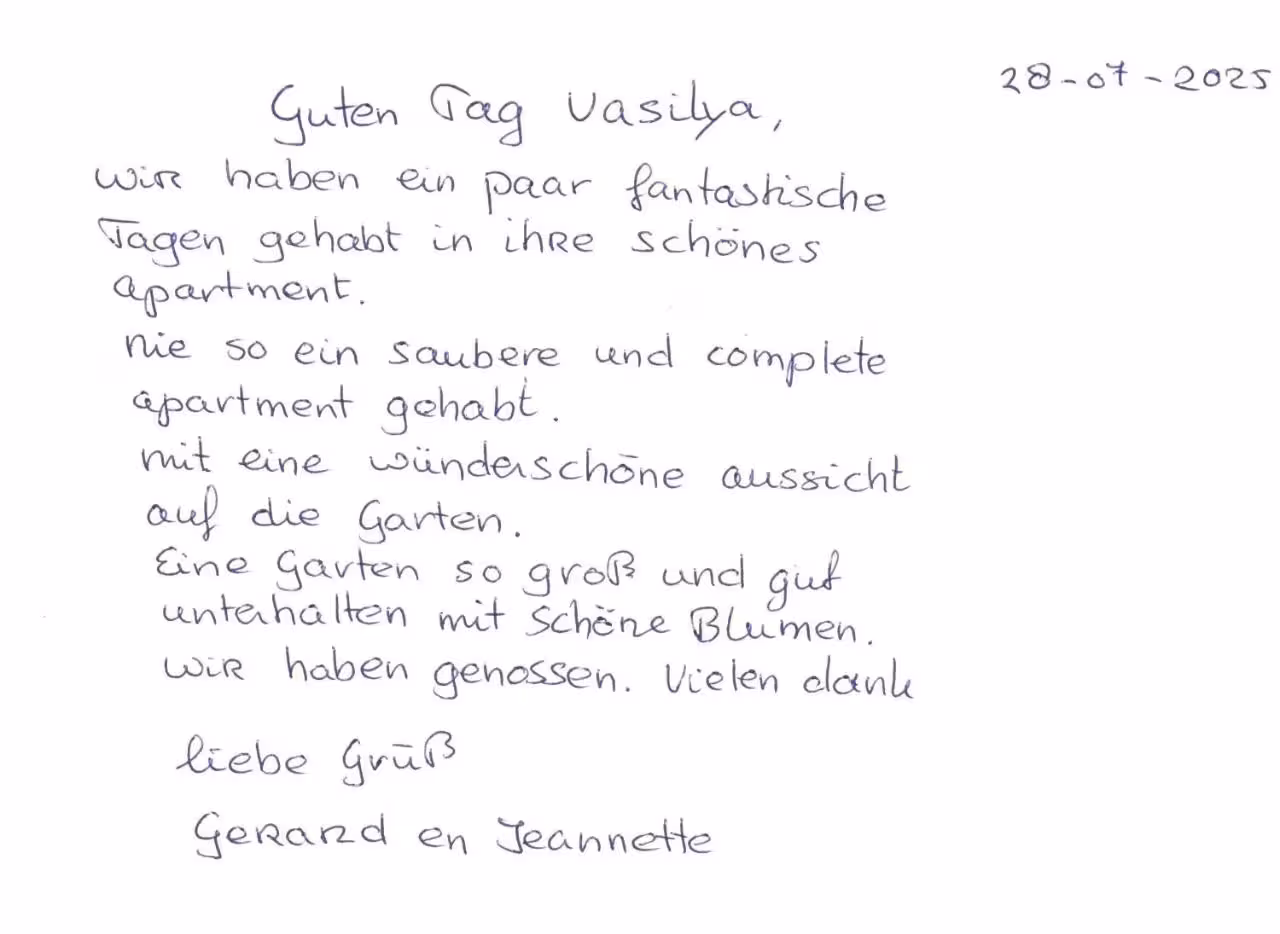 28-07-2025
Guten Tag Vasilya,
wir haben ein paar fantastische
Tagen gehabt in ihre schönes
apartment.
nie so ein saubere und complete
apartment gehabt.
mit eine wünderschöne aussicht
auf die Garten.
Eine Garten so groß und gut
unterhalten mit schöne Blumen.
wir haben genossen. Vielen dank
liebe Grüß
Gerard en Jeannette